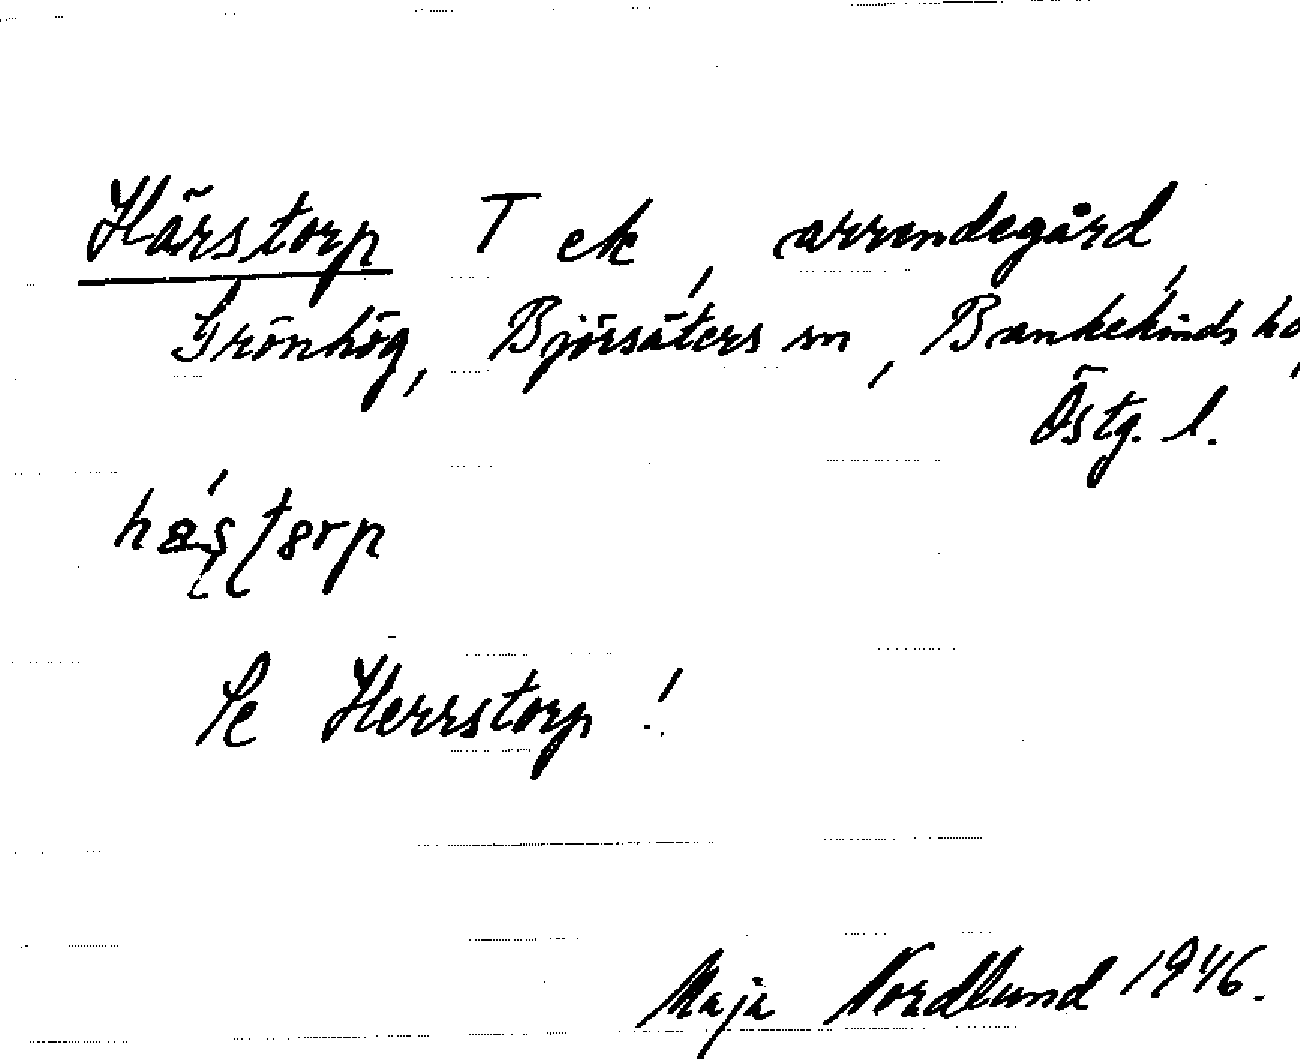 Härstorp T ek, arrendegård,
Grönhög, Björsäters sn, Bankekinds hd,
Östg. l.
Se Herrstorp!
Maja Nordlund 1946.